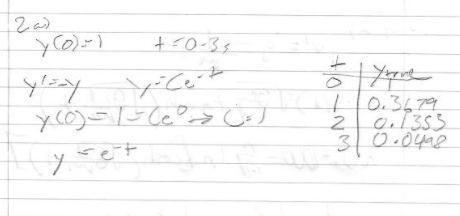 2a)
y(0)=1 t=0-3s
y'=-y y=Ce^-t
y(0)=1=Ce^0 → C=1
y=e^-t
t | y true
0 | 1
1 | 0.3679
2 | 0.1353
3 | 0.0498